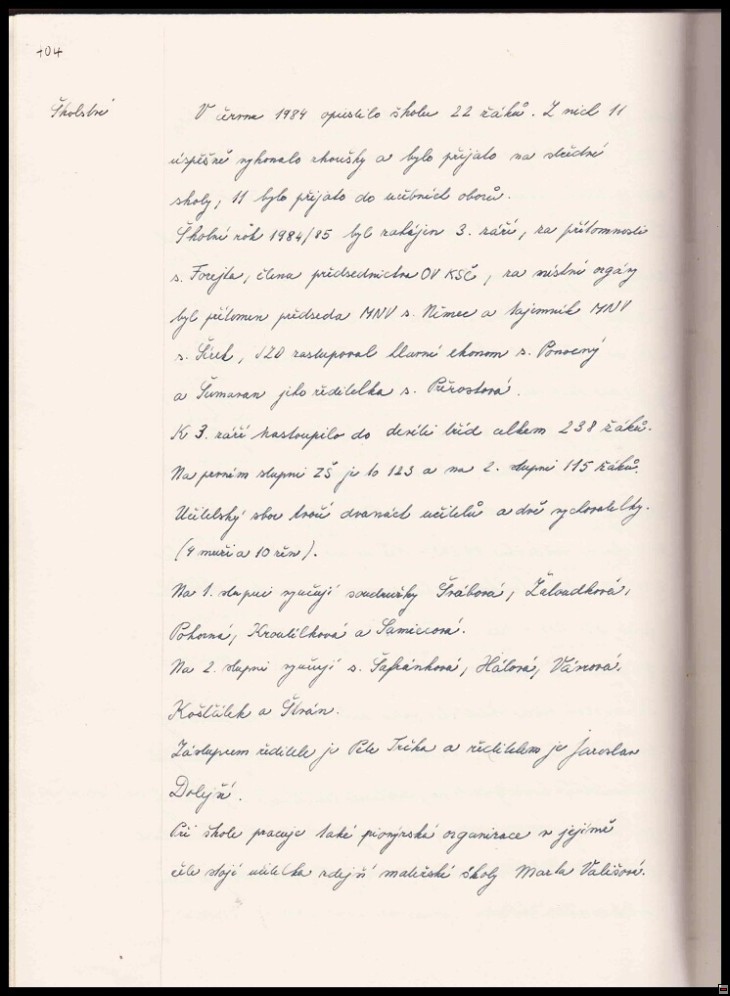 104
Školství
V červnu 1984 opustilo školu 22 žáků. Z nich 11
úspěšně vykonalo zkoušky a bylo přijato na střední
školy, 11 bylo přijato do učebních oborů.
Školní rok 1984/85 byl zahájen 3. září, za přítomnosti
s. Forejta, člena předsednictva OV KSČ, za místní orgány
byl přítomen předseda MNV s. Němec a tajemník MNV
s. Šírek, JZD zastupoval hlavní ekonom s. Ponocný
a Šumavan jeho ředitelka s. Pěrostová.
K 3. září nastoupilo do devíti tříd celkem 238 žáků.
Na prvním stupni ZŠ je to 123 a na 2. stupni 115 žáků.
Učitelský sbor tvoří dvanáct učitelů a dvě vychovatelky.
(4 muži a 10 žen).
Na 1. stupni vyučují soudružky Šrábová, Závadková,
Pokorná, Kroutilková a Samcová.
Na 2. stupni vyučují s. Šafránková, Hálová, Vánová,
Košťálek a Štván.
Zástupcem ředitele je Petr Trčka a ředitelem je Jaroslav
Dolejší.
Při škole pracuje také pionýrská organizace v jejímž
čele stojí učitelka zdejší mateřské školy Marta Valešová.